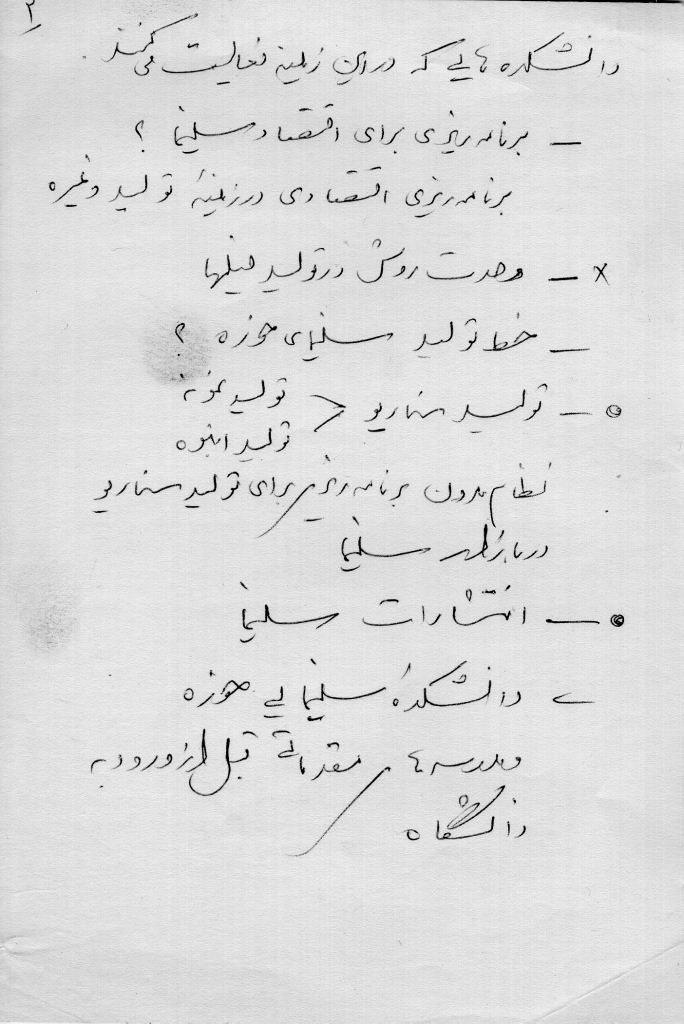 ۲
دانشکده هایی که در این زمینه فعالیت می کنند.
– برنامه ریزی برای اقتصاد سینما ؟
برنامه ریزی اقتصادی در زمینهٔ تولید و غیره
× – وحدت روش در تولید فیلمها
– خط تولید سینمای حوزه ؟
– تولید سناریو < تولید نمونه
تولید انبوه
نظام مدون برنامه ریزی برای تولید سناریو
سینما
– انتشارات سینما
– دانشکدهٔ سینمایی حوزه
و مدرسه ها مقدماتی قبل از ورود به
دانشگاه